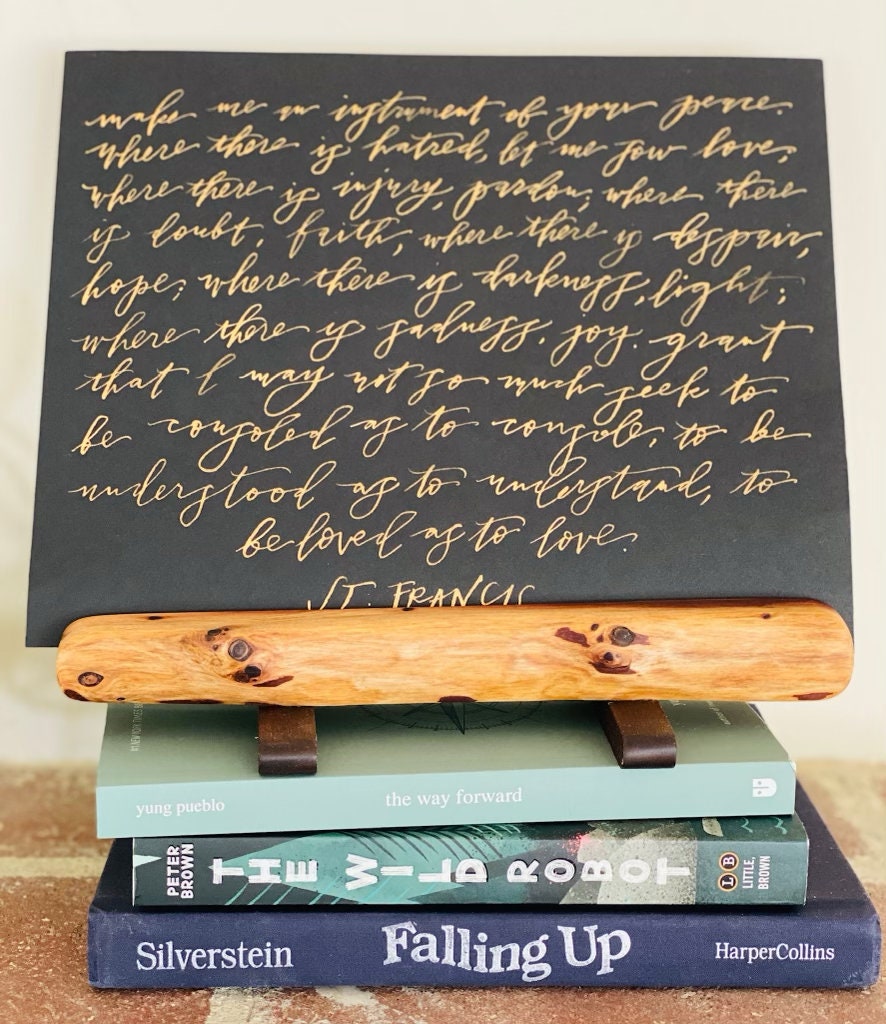 make me an instrument of your peace.
where there is hatred, let me sow love;
where there is injury, pardon; where there
is doubt, faith; where there is despair,
hope; where there is darkness, light;
where there is sadness, joy. grant
that I may not so much seek to
be consoled as to console, to be
understood as to understand, to
be loved as to love.
ST. FRANCIS
#1 NEW YORK TIMES
yung pueblo the way forward
PETER BROWN THE WILD ROBOT LB LITTLE, BROWN
Silverstein Falling Up HarperCollins